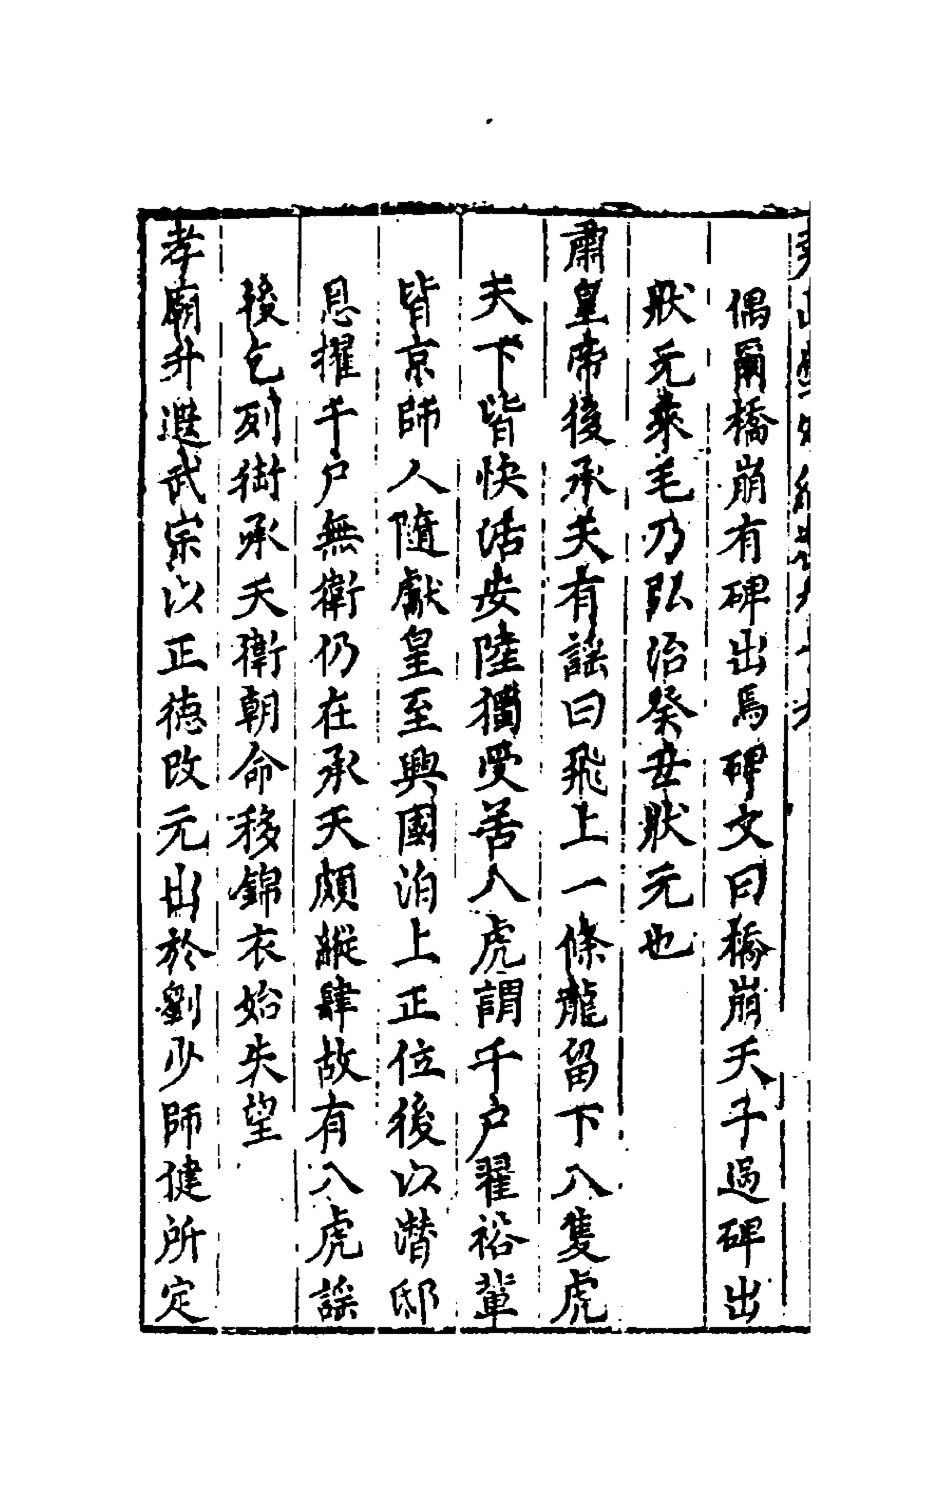 偶爾橋崩有碑出焉碑文曰橋崩天子過碑出
狀元來毛乃弘治癸丑狀元也
肅皇帝後承天有謠曰飛上一條龍留下八隻虎
天下皆快活安陸獨受苦八虎謂千户翟裕輩
皆京師人隨獻皇至興國洎上正位後以潛邸
恩擢千户無衛仍在承天頗縱肆故有八虎謠
後乞列銜承天衛朝命移錦衣始失望
孝廟升遐武宗以正德改元出於劉少師健所定